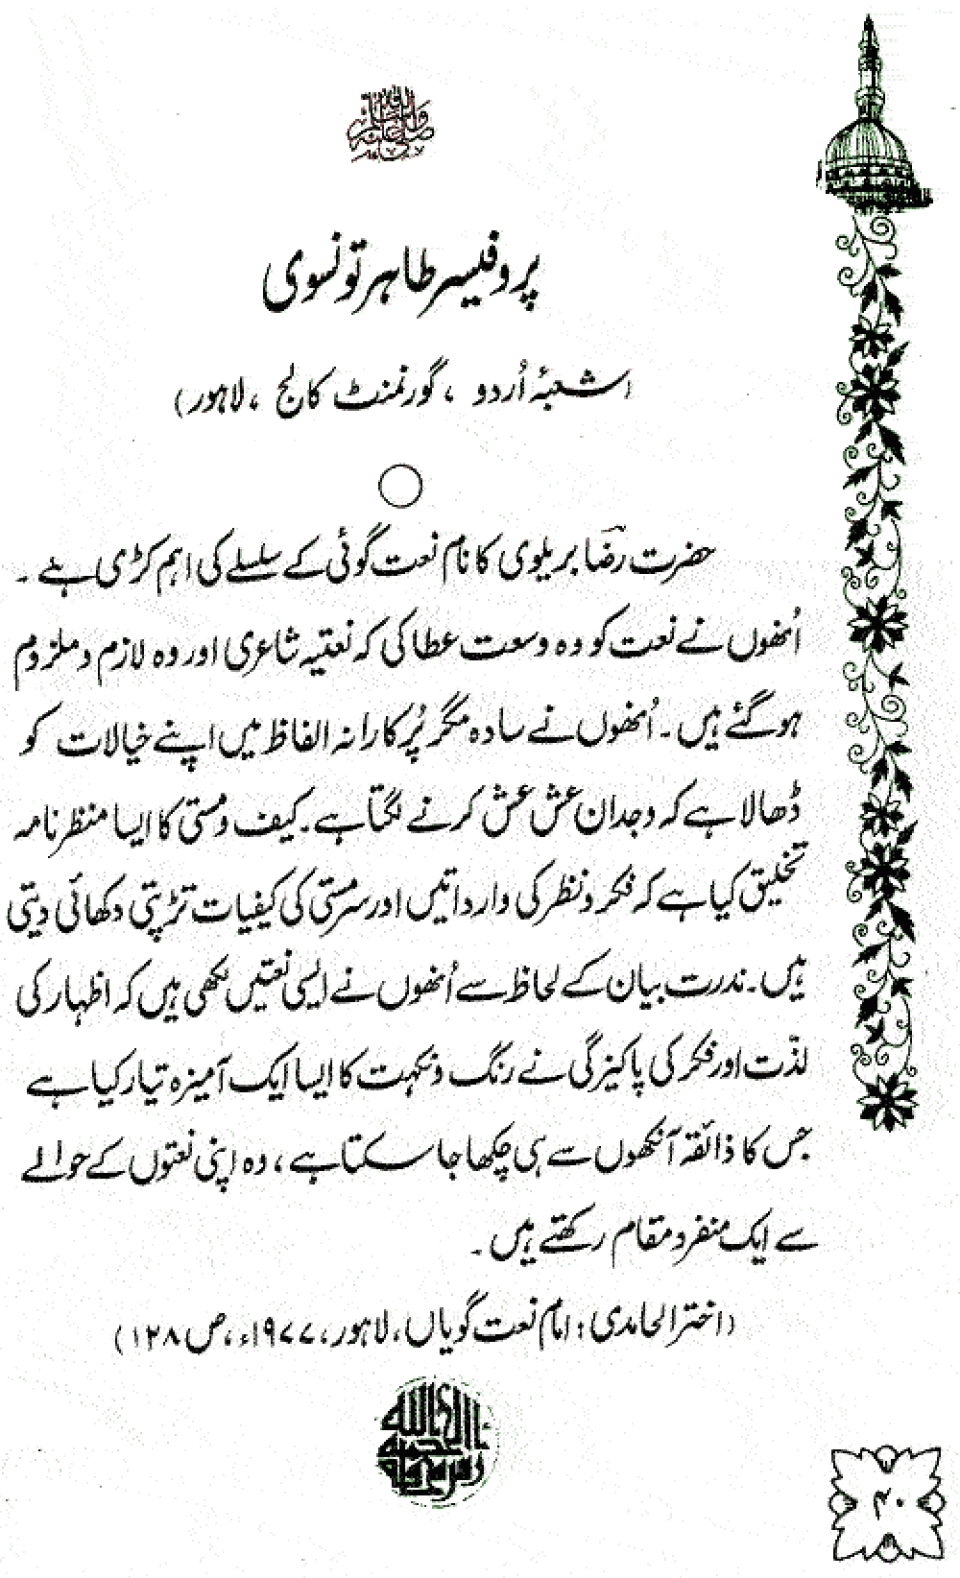 صلی اللہ علیہ وآلہ وسلم
پروفیسر طاہر تونسوی
(شعبۂ اُردو ، گورنمنٹ کالج ، لاہور)
حضرت رضؔا بریلوی کا نام نعت گوئی کے سلسلے کی اہم کڑی ہے ۔
اُنھوں نے نعت کو وہ وسعت عطا کی کہ نعتیہ شاعری اور وہ لازم و ملزوم
ہو گئے ہیں ۔ اُنھوں نے سادہ مگر پُرکارانہ الفاظ میں اپنے خیالات کو
ڈھالا ہے کہ وجدان عش عش کرنے لگتا ہے ۔ کیف و مستی کا ایسا منظرنامہ
تخلیق کیا ہے کہ فکر و نظر کی وارداتیں اور سرمستی کی کیفیات تڑپتی دکھائی دیتی
ہیں ۔ ندرت بیان کے لحاظ سے اُنھوں نے ایسی نعتیں لکھی ہیں کہ اظہار کی
لذّت اور فکر کی پاکیزگی نے رنگ و نکہت کا ایسا ایک آمیزہ تیار کیا ہے
جس کا ذائقہ آنکھوں سے ہی چکھا جا سکتا ہے ، وہ اپنی نعتوں کے حوالے
سے ایک منفرد مقام رکھتے ہیں ۔
(اختر الحامدی : امام نعت گویاں ، لاہور ، ۱۹۷۷ء ، ص ۱۲۸)
۴۰